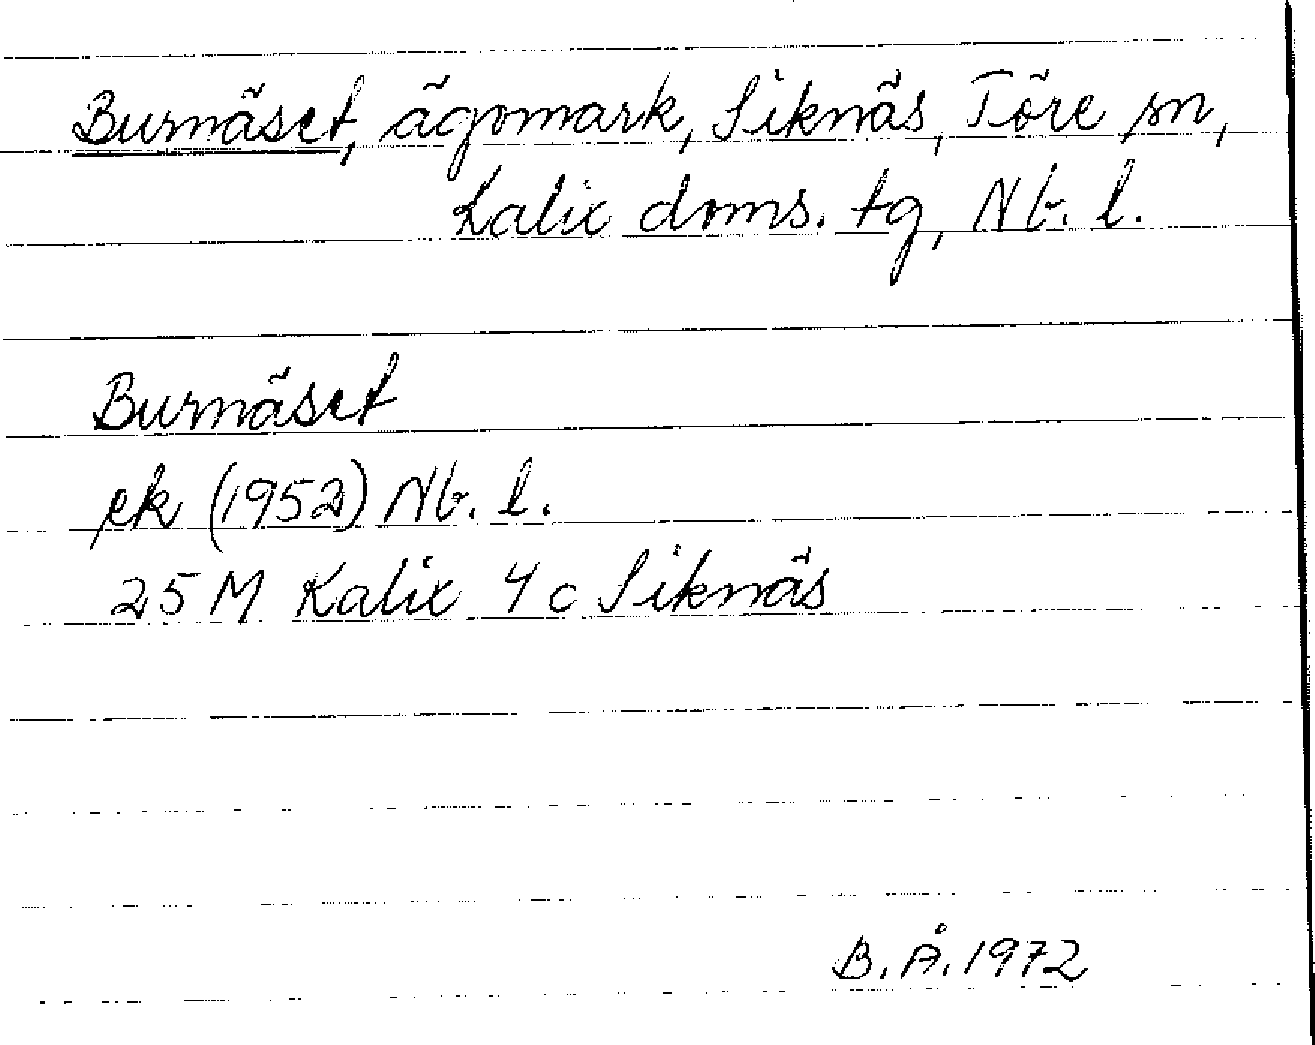 Burnäset, ägomark, Siknäs, Töre sn,
Kalix doms. tg, Nb. l.
Burnäset
ek (1952) Nb. l.
25 M Kalix 4 c Siknäs
B. Å. 1972